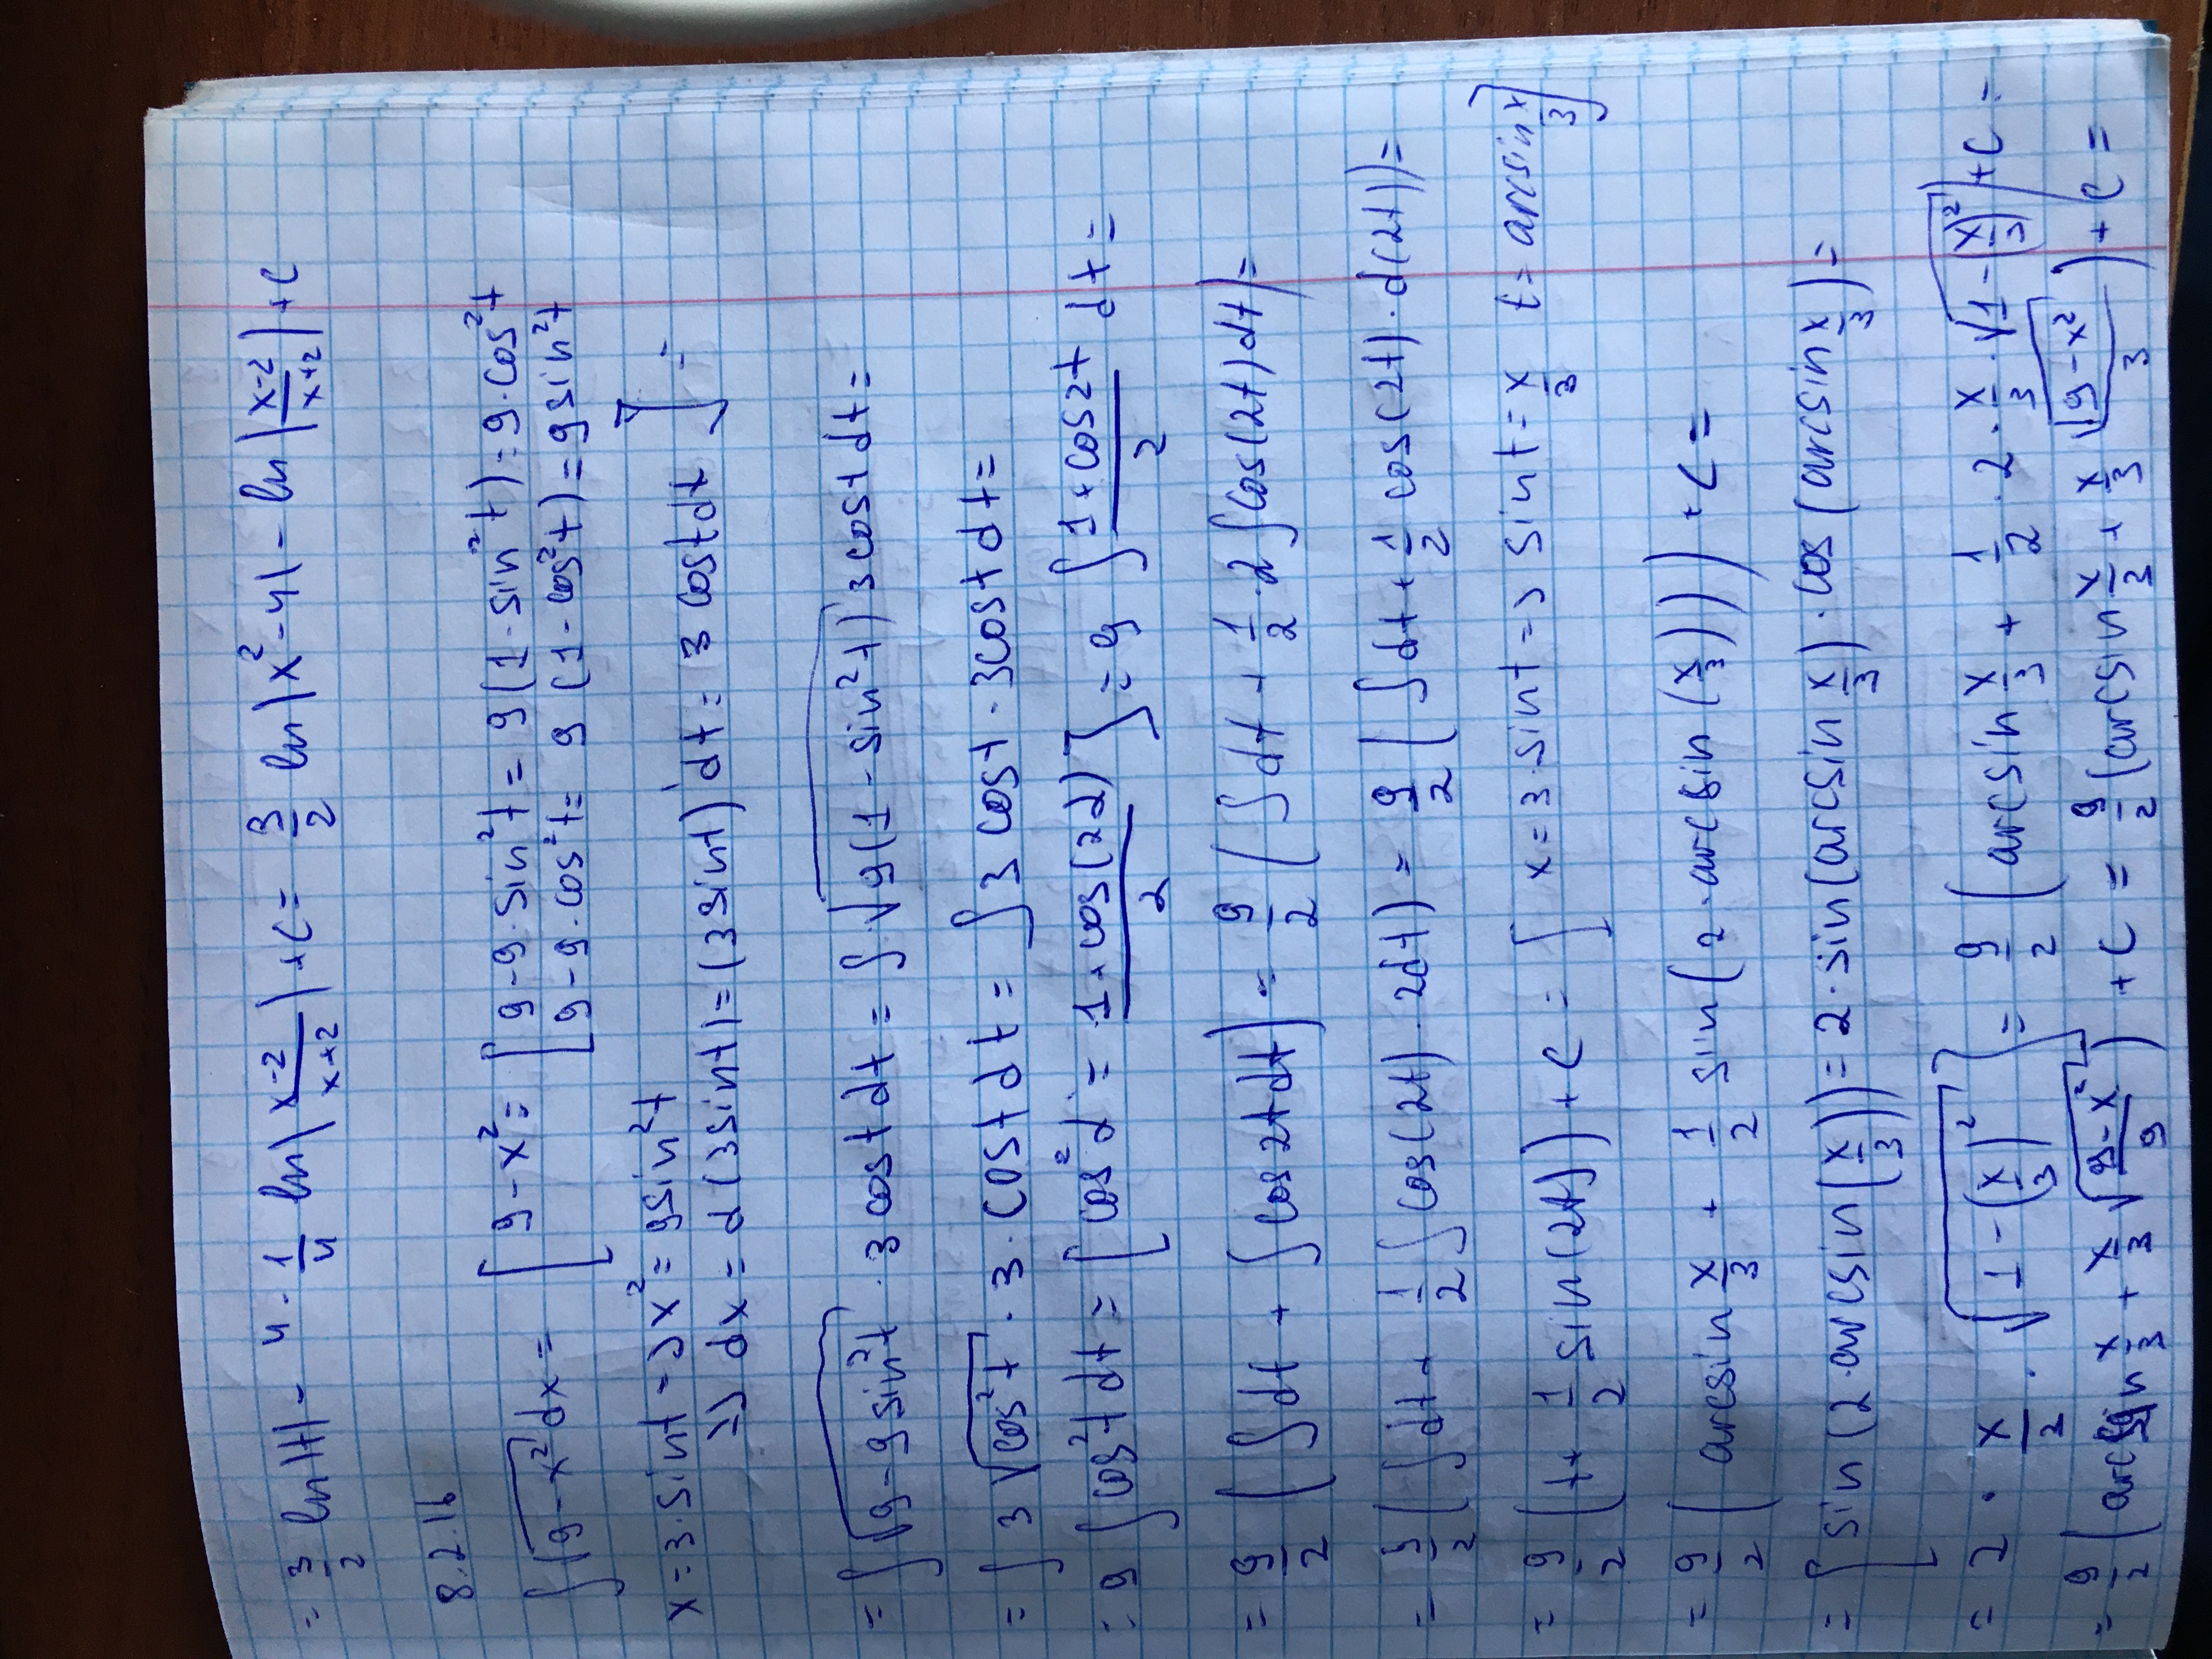 = 3/2 ln|t| - 4 · 1/4 ln|(x-2)/(x+2)| + C = 3/2 ln|x²-4| - ln|(x-2)/(x+2)| + C
8.2.16
∫√(9-x²) dx = [ 9-x² = [ 9-9·sin²t = 9(1-sin²t) = 9·cos²t
9-9·cos²t = 9(1-cos²t) = 9sin²t
x = 3·sint => x² = 9sin²t
=> dx = d(3sint) = (3sint)'dt = 3 cost dt ] =
= ∫√(9-9sin²t) · 3 cost dt = ∫√(9(1-sin²t)) 3cost dt =
= ∫ 3√(cos²t) · 3 · cost dt = ∫ 3 cost · 3cost dt =
= 9 ∫ cos²t dt = [ cos²α = (1+cos(2α))/2 ] = 9 ∫ (1+cos2t)/2 dt =
= 9/2 (∫dt + ∫cos2t dt) = 9/2 (∫dt + 1/2 · 2 ∫cos(2t) dt) =
= 9/2 (∫dt + 1/2 ∫cos(2t) · 2dt) = 9/2 (∫dt + 1/2 cos(2t) · d(2t)) =
= 9/2 (t + 1/2 sin(2t)) + C = [ x = 3·sint => sint = x/3 t = arcsin x/3 ]
= 9/2 (arcsin x/3 + 1/2 sin(2·arcsin(x/3))) + C =
= [ sin(2·arcsin(x/3)) = 2·sin(arcsin x/3)·cos(arcsin x/3) =
= 2 · x/2 · √(1-(x/3)²) ] = 9/2 (arcsin x/3 + 1/2 · 2 · x/3 · √(1-(x/3)²)) + C =
= 9/2 (arcsin x/3 + x/3 √((9-x²)/9)) + C = 9/2 (arcsin x/3 + x/3 √(9-x²)/3) + C =